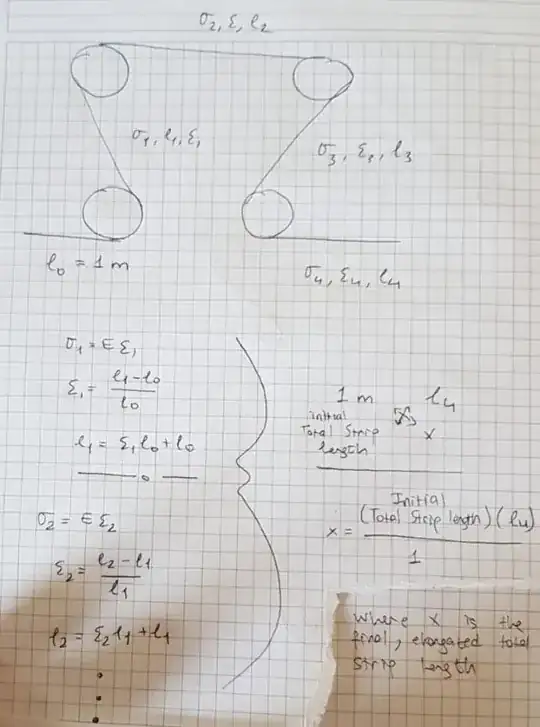 σ₂, ξ, l₂
σ₁, l₁, ξ₁
σ₃, ξ₃, l₃
l₀ = 1 m
σ₄, ξ₄, l₄
σ₁ = E ξ₁
ξ₁ = (l₁ - l₀) / l₀
l₁ = ξ₁ l₀ + l₀
σ₂ = E ξ₂
ξ₂ = (l₂ - l₁) / l₁
l₂ = ξ₂ l₁ + l₁
1 m l₄
initial
Total Strip x
length
Initial
x = (Total Strip length) (l₄) / 1
where x is the
final, elongated total
strip length